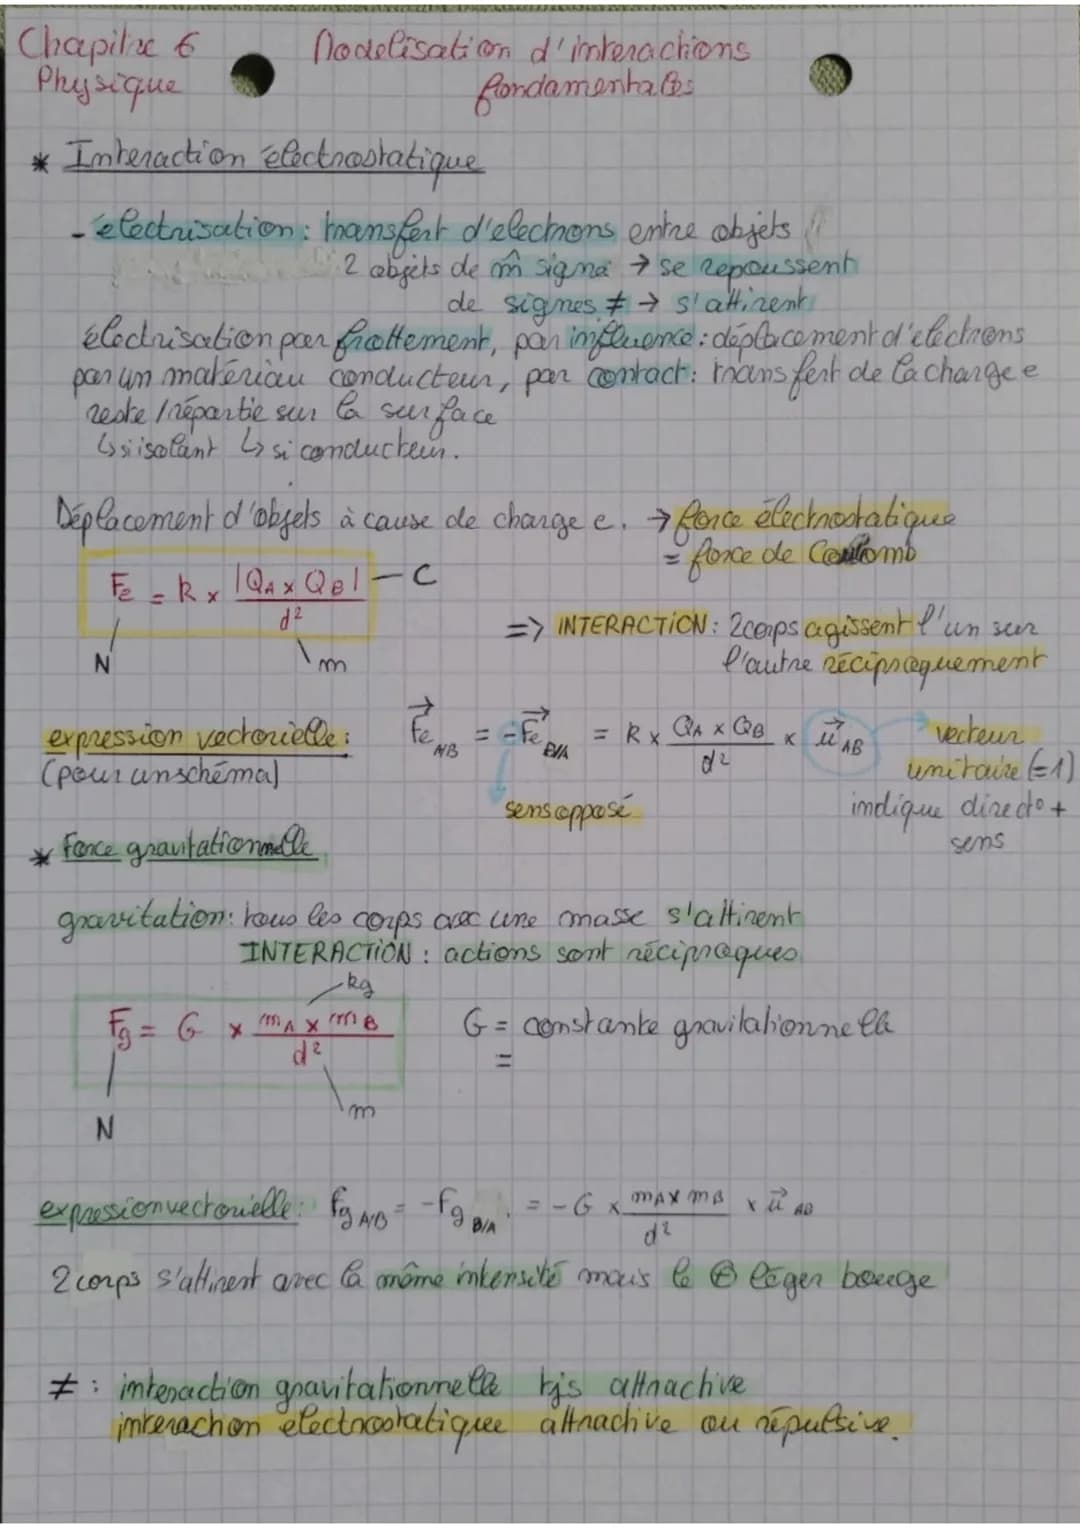 Chapitre 6
Physique
Modelisation d'interactions
fondamentales
* Interaction électrostatique
- électrisation : transfert d'electrons entre objets
2 objets de m̂ signe → se repoussent
de signes ≠ → s'attirent
électrisation par frottement, par influence : déplacement d'électrons
par un matériau conducteur, par contact : transfert de la charge e
reste / répartie sur la surface
↳ si isolant ↳ si conducteur.
Déplacement d'objets à cause de charge e. → force électrostatique
= force de Coulomb
Fe = k x |QA x QB| / d² — C
N
m
=> INTERACTION : 2 corps agissent l'un sur
l'autre réciproquement
expression vectorielle :
(pour un schéma)
Fe→ A/B = - Fe→ B/A = k x QA x QB / d² x u→ AB
vecteur
unitaire (=1)
indique direct° +
sens
sens opposé
* Force gravitationnelle
gravitation : tous les corps avec une masse s'attirent
INTERACTION : actions sont réciproques
kg
Fg = G x mA x mB / d²
G = constante gravitationnelle
=
m
N
expression vectorielle : Fg A/B = - Fg B/A = - G x mA x mB / d² x u→ AB
2 corps s'attirent avec la même intensité mais le ⊕ léger bouge
≠ : interaction gravitationnelle tjs attractive
interaction électrostatique attractive ou répulsive.